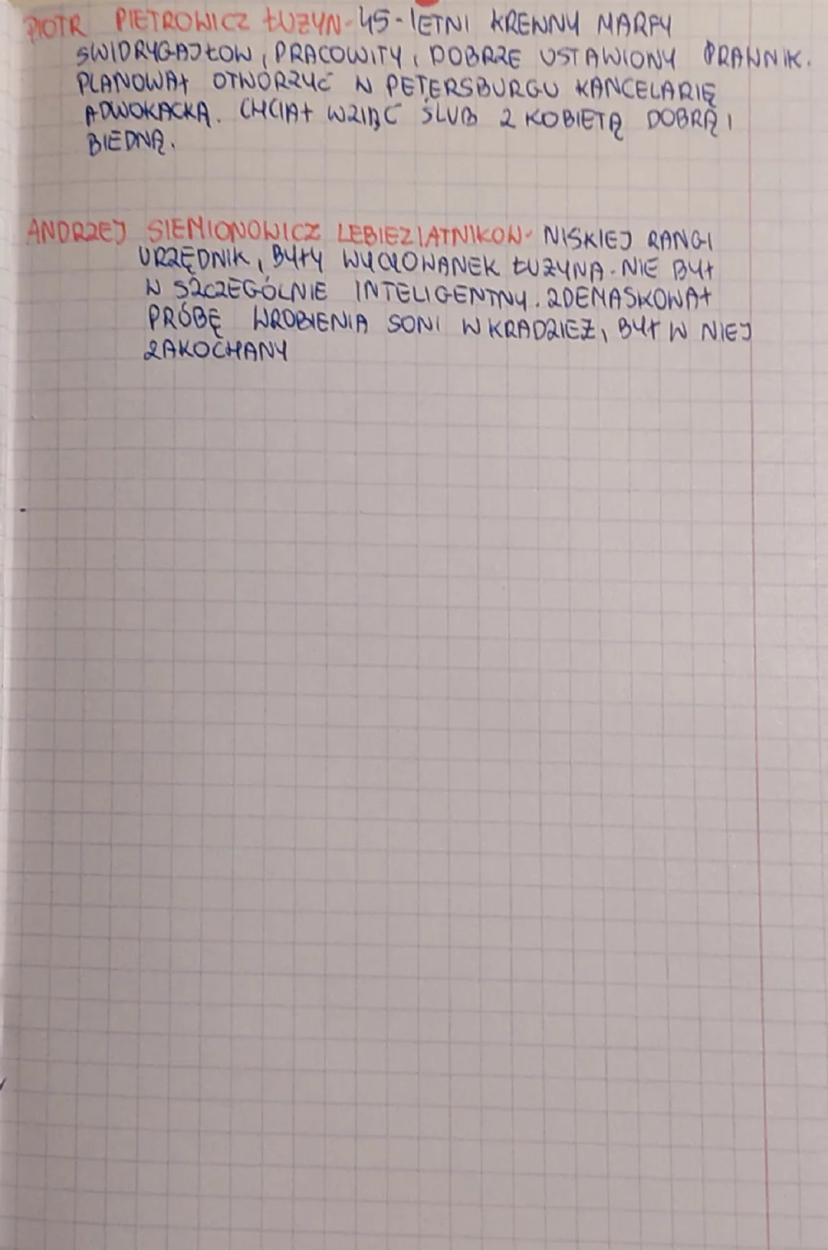 PIOTR PIETROWICZ ŁUŻYN - 45-LETNI KREWNY MARFY
SWIDRYGAJŁOW, PRACOWITY, DOBRZE USTAWIONY PRAWNIK.
PLANOWAŁ OTWORZYĆ W PETERSBURGU KANCELARIĘ
ADWOKACKĄ. CHCIAŁ WZIĄĆ ŚLUB Z KOBIETĄ DOBRĄ I
BIEDNĄ.
ANDRZEJ SIEMIONOWICZ LEBIEZIATNIKOW- NISKIEJ RANGI
URZĘDNIK, BYŁY WYCHOWANEK ŁUŻYNA. NIE BYŁ
W SZCZEGÓLNIE INTELIGENTNY. ZDEMASKOWAŁ
PRÓBĘ WROBIENIA SONI W KRADZIEŻ, BYŁ W NIEJ
ZAKOCHANY